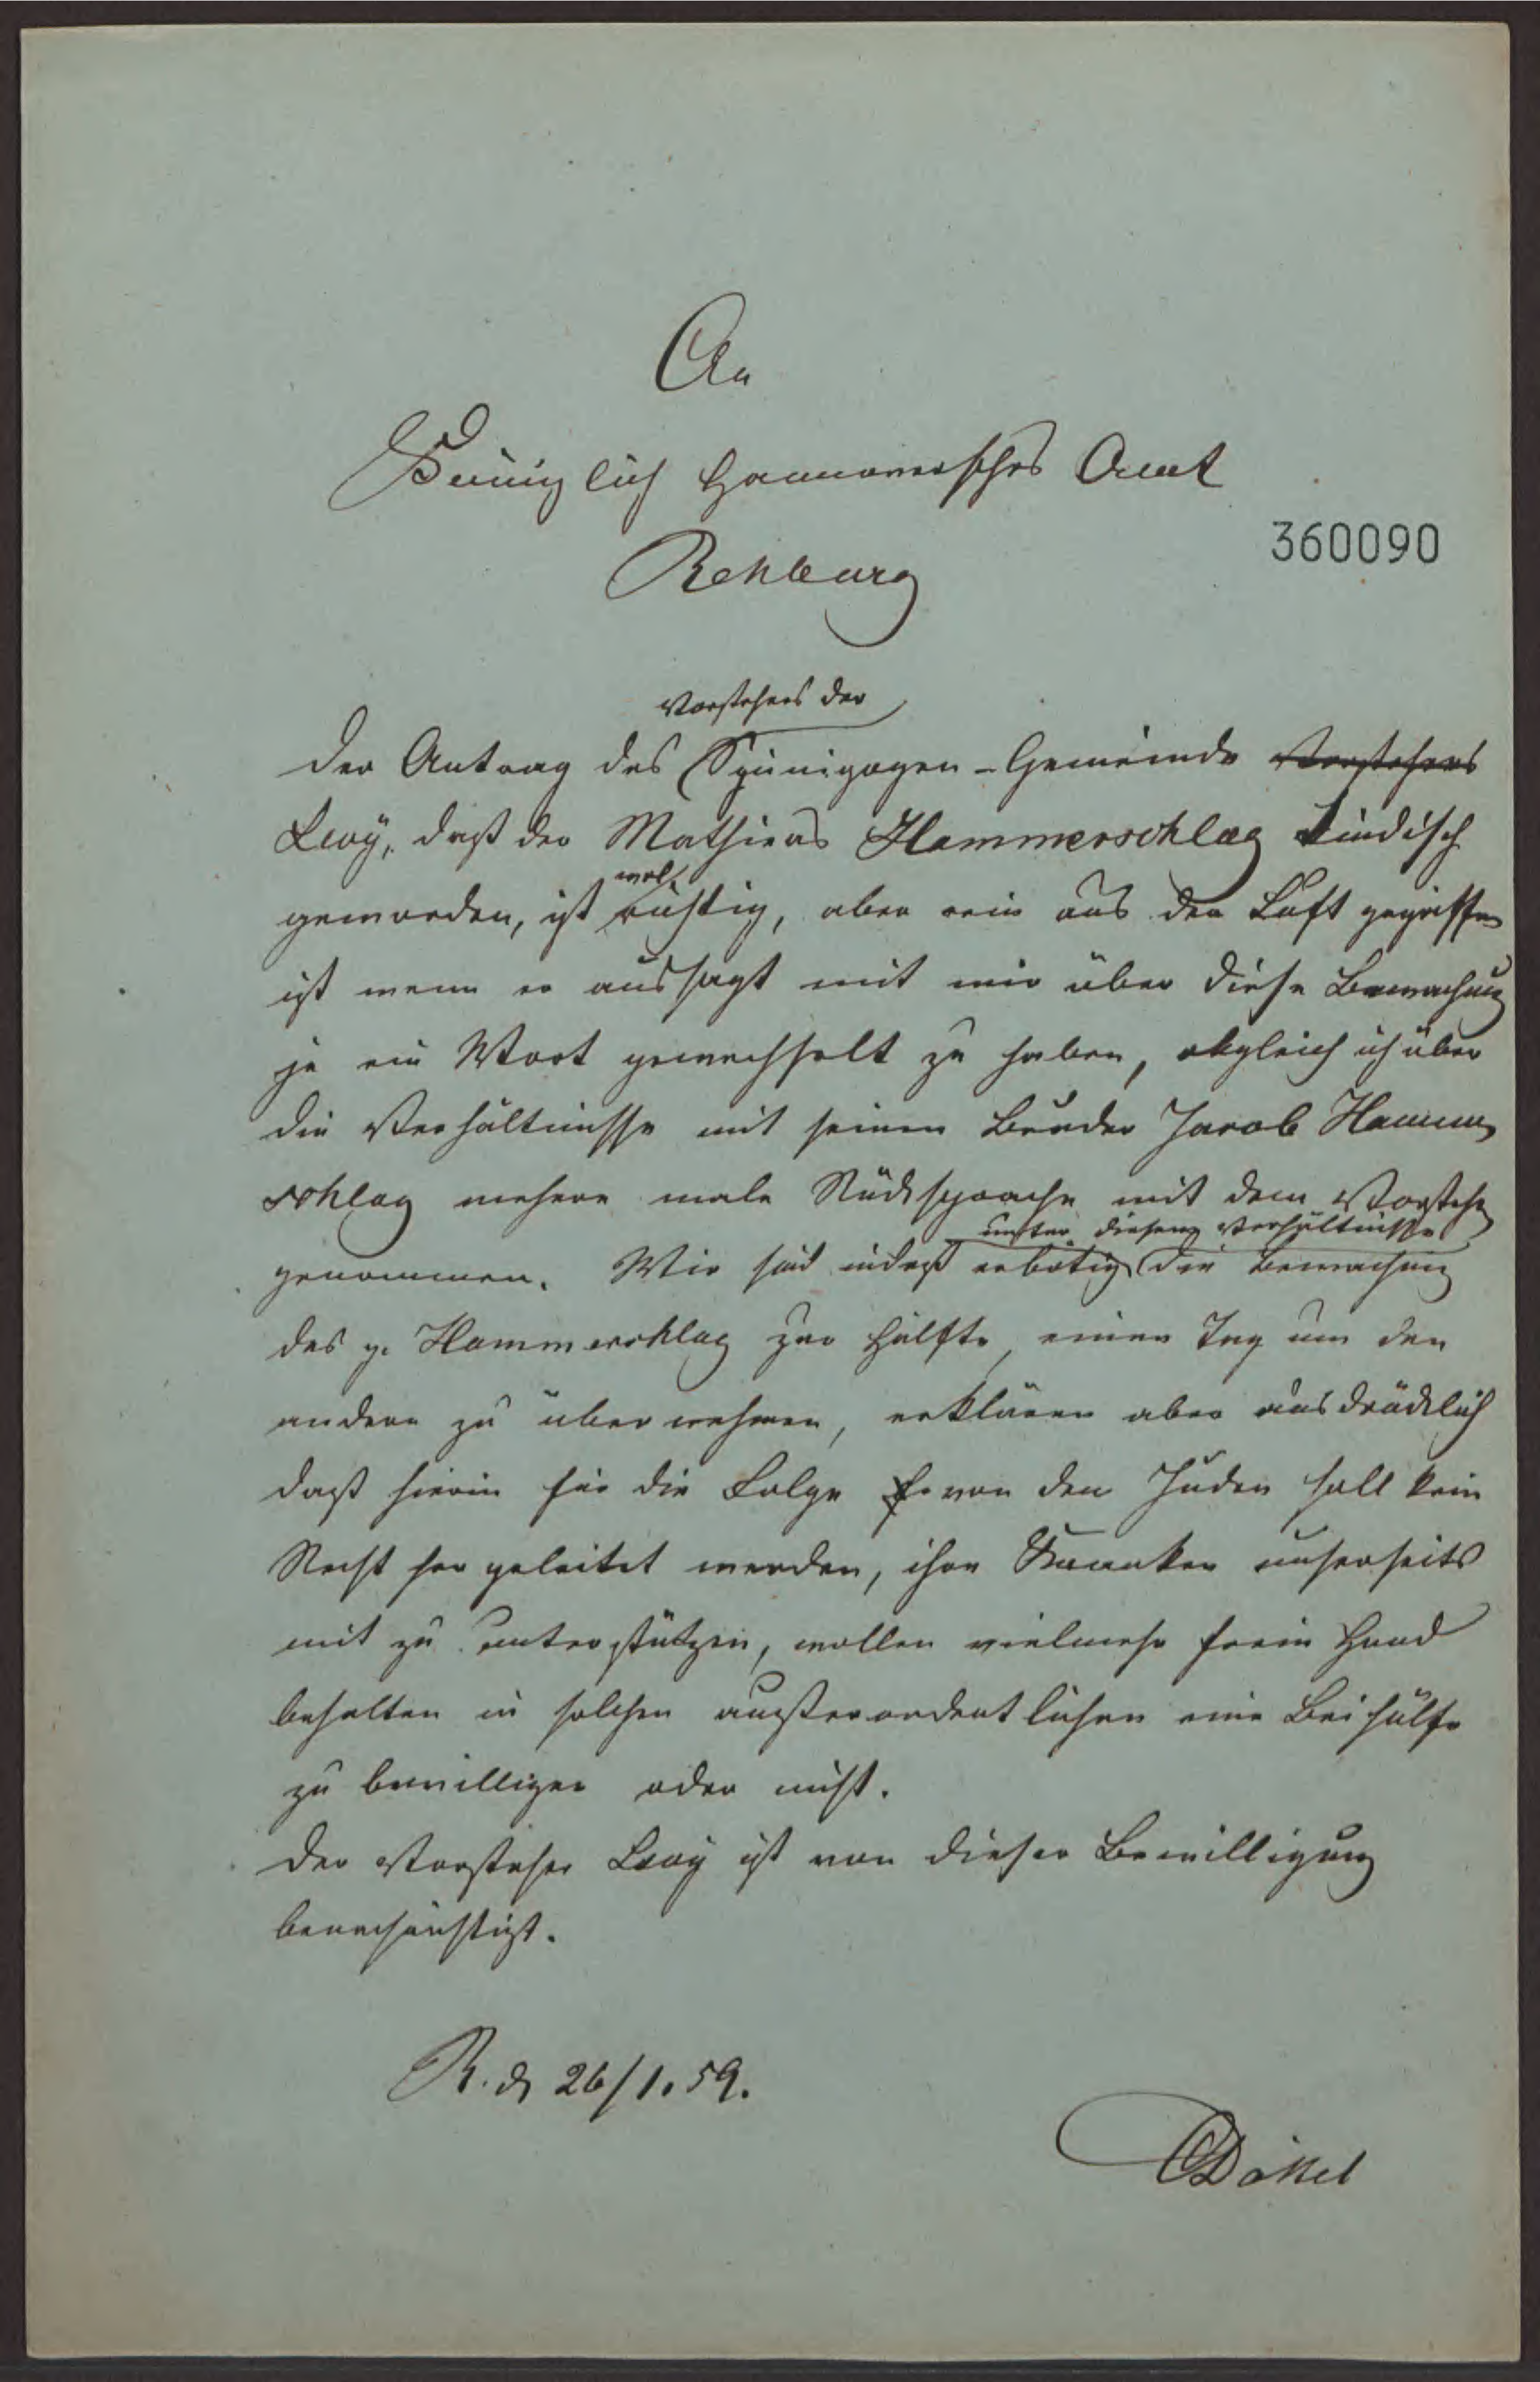 An
Königlich Hannoversches Amt
360090
Rehburg
Vorstehers der
Der Antrag des Synigogen-Gemeinde Vorstehers
Levÿ, daß der Mathieas Hammerschlag kindisch
wol
geworden, ist richtig, aber rein aus der Luft gegriffen
ist wenn er aussagt mit mir über diese Bewachung
je ein Wort gewechselt zu haben, obgleich ich über
die Verhältnisse mit seinen Bruder Jacob Hammer
schlag mehere male Rücksprache mit dem Vorsteher
unter diesen Verhältnisse
genommen. Wir sind indeß erbotig die Bewachung
des p. Hammerschlag zur Hälfte, einen Tag um den
andern zu übernehmen, erklären aber ausdrücklich
daß hierin für die Folge von den Juden soll kein
Recht her geleitet werden, ihre Kranken unserseits
mit zu unterstützen, wollen vielmehr freie Hand
behalten in solchen außerordentlichen eine Beihülfe
zu bewilligen oder nicht.
Der Vorsteher Levÿ ist von dieser Bewilligung
benachrichtigt.
R. d 26/1.59.
Dökel